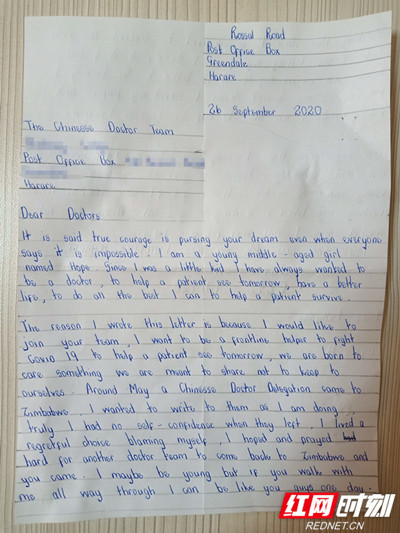 Rossal Road
Post Office Box
Greendale
Harare
26 September 2020
The Chinesse Doctor Team
Post Office Box
Harare
Dear Doctors
It is said true courage is pursing your dream even when everyone
says it is impossible. I am a young middle-aged girl
named Hope. Since I was a little kid I have always wanted to
be a doctor, to help a patient see tomorrow, have a better
life, to do all the best I can to help a patient survive.
The reason I wrote this letter is because I would like to
join your team, I want to be a frontline helper to fight
Covid 19 to help a patient see tomorrow, we are born to
care something we are meant to share not to keep to
ourselves. Around May a Chinesse Doctor Delegation came to
Zimbabwe, I wanted to write to them as I am doing
truly I had no self-confidence when they left, I lived a
regretful choice blaming myself, I hoped and prayed
hard for another doctor team to come back to Zimbabwe and
you came. I maybe be young but if you walk with
me all way through I can be like you guys one day.
红网时刻
REDNET.CN